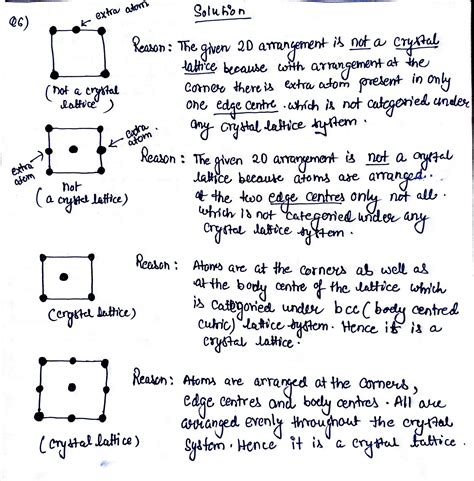 Solution
Q6)
extra atom
Reason: The given 2D arrangement is not a crystal
lattice because with arrangement at the
corner there is extra atom present in only
one edge centre. which is not categoried under
any crystal lattice system.
(not a crystal
lattice)
extra
atom
extra
atom
Reason: The given 2D arrangement is not a crystal
lattice because atoms are arranged.
at the two edge centres only not all.
which is not categoried under any
crystal lattice system.
not
(a crystal lattice)
Reason: Atoms are at the corners as well as
at the body centre of the lattice which
is categoried under bcc (body centred
cubic) lattice system. Hence it is a
crystal lattice.
(crystal lattice)
Reason: Atoms are arranged at the corners,
edge centres and body centres. All are
arranged evenly throughout the crystal
system. Hence it is a crystal lattice.
(crystal lattice)